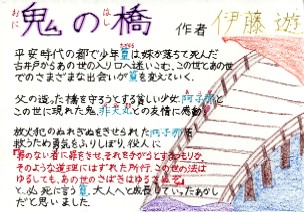 鬼の橋 作者 伊藤遊
おに はし
平安時代の都で少年篁は妹が落ちて死んだ
古井戸からあの世の入り口へ迷いこむ。この世とあの世
でのさまざまな出会いが篁を変えていく。
父の造った橋を守ろうとする貧しい少女、阿子那と
この世に現れた鬼、非天丸との友情に感動!
放火犯のぬれぎぬをきせられた阿子那を
救うため勇気をふりしぼり、役人に
「罪のない者に罪をきせ、それを
そのような道理にはずれた所行、この世の法は
ゆるしても、あの世のさばきはゆるす
と 死に言う篁。大人へと成長していったあかし
だと思いました。